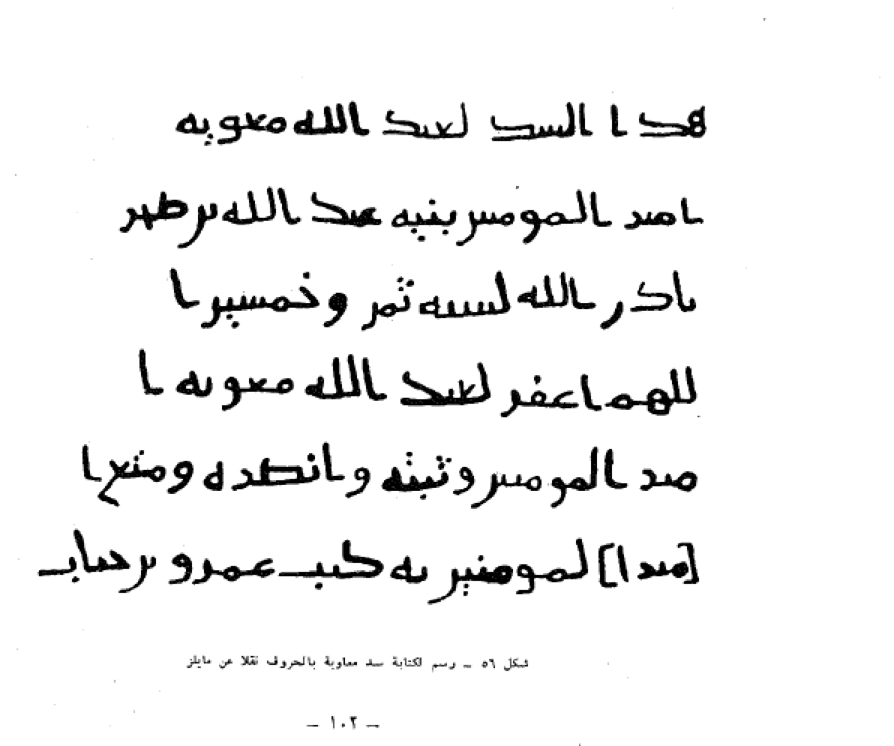 هذا السد لعبد الله معويه
امير المومنين بنيه عبد الله بن صخر
باذن الله لسنه ثمن وخمسين ا
للهم اغفر لعبد الله معويه ا
مير المومنين وثبته وانصره ومتع ا
[مير ا]لمومنين به كتب عمرو بن حباب
شكل ٥٦ – رسم لكتابة سد معاوية بالحروف نقلا عن مايلز
– ١٠٢ –